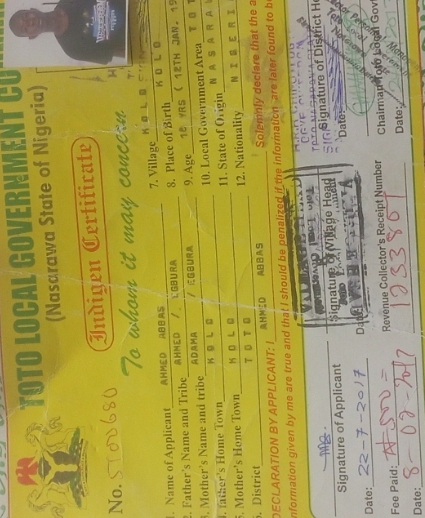 TOTO LOCAL GOVERNMENT
(Nasarawa State of Nigeria)
Indigen Certificate
No. ST00680
To whom it may concern
Name of Applicant AHMED ABBAS
2. Father's Name and Tribe AHMED / EGBURA
3. Mother's Name and tribe ADAMA / EGBURA
Father's Home Town KOLO
5. Mother's Home Town KOLO
District TOTO
7. Village KOLO
8. Place of Birth KOLO
9. Age 18 YRS ( 12TH JAN. 19
10. Local Government Area TOT
11. State of Origin NASARAW
12. Nationality NIGERI
DECLARATION BY APPLICANT: I AHMED ABBAS Solemnly declare that the a
information given by me are true and that I should be penalized if the information, are later found to be
Signature of Applicant
Date: 22-7-2017
Signature of Village Head
Date:
Signature of District He
Date:
Fee Paid: ₦500=
Revenue Collector's Receipt Number
1233807
Chairman Toto Local Gov
Date: 8-02-2017
Date: